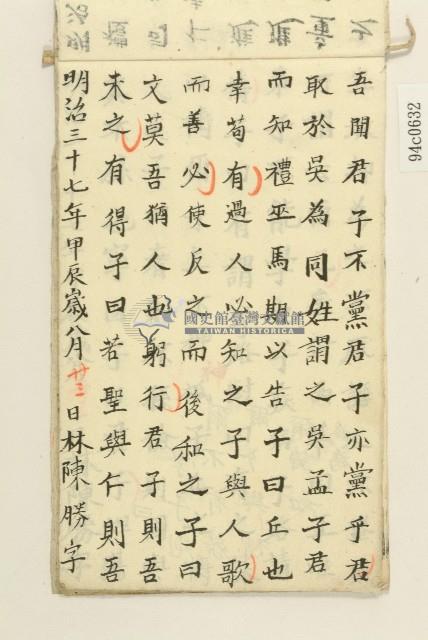 吾聞君子不黨君子亦黨乎君
取於吳為同姓謂之吳孟子君
而知禮巫馬期以告子曰丘也
幸苟有過人必知之子與人歌
而善必使反之而後和之子曰
文莫吾猶人也躬行君子則吾
未之有得子曰若聖與仁則吾
明治三十七年甲辰歲八月廿三日林陳勝字
國史館臺灣文獻館
TAIWAN HISTORICA
94c0632